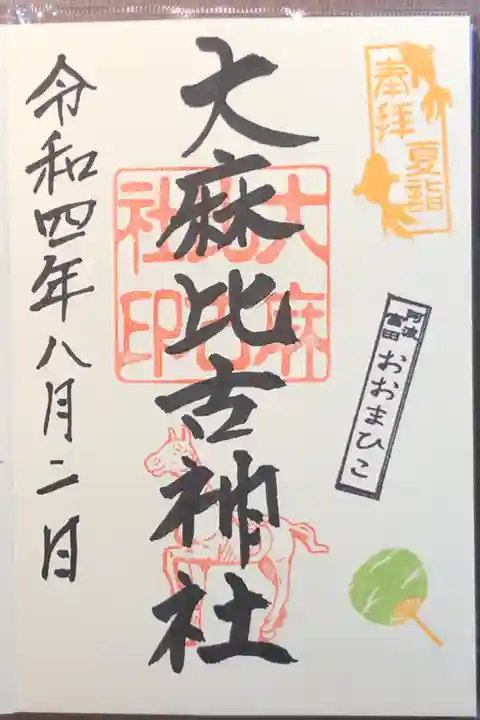 奉拝
夏詣
大麻比古神社
大麻比古
社印
阿波
富田
おおまひこ
令和四年八月二日